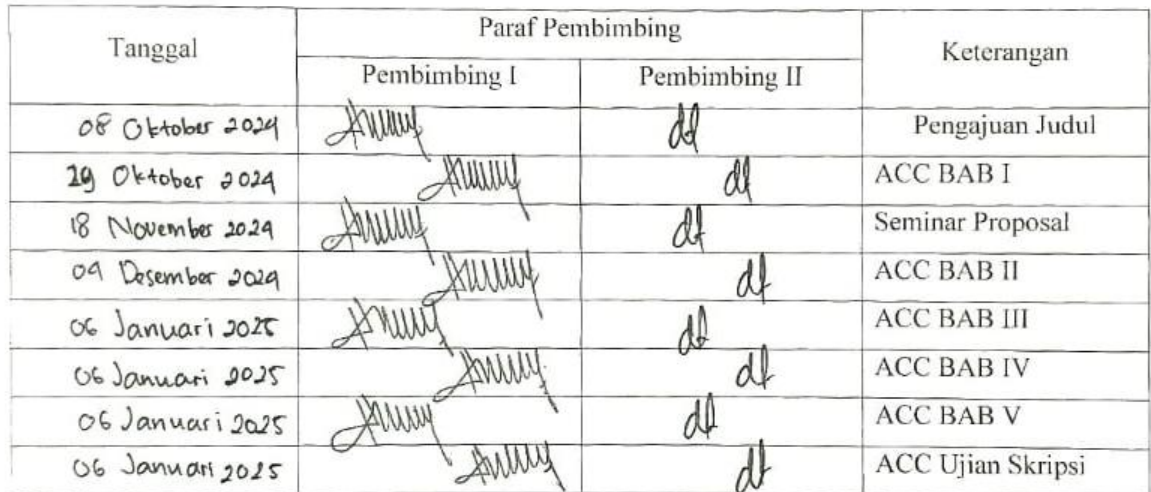 Tanggal Paraf Pembimbing Keterangan
Pembimbing I Pembimbing II
08 Oktober 2024 Pengajuan Judul
29 Oktober 2024 ACC BAB I
18 November 2024 Seminar Proposal
04 Desember 2024 ACC BAB II
06 Januari 2025 ACC BAB III
06 Januari 2025 ACC BAB IV
06 Januari 2025 ACC BAB V
06 Januari 2025 ACC Ujian Skripsi